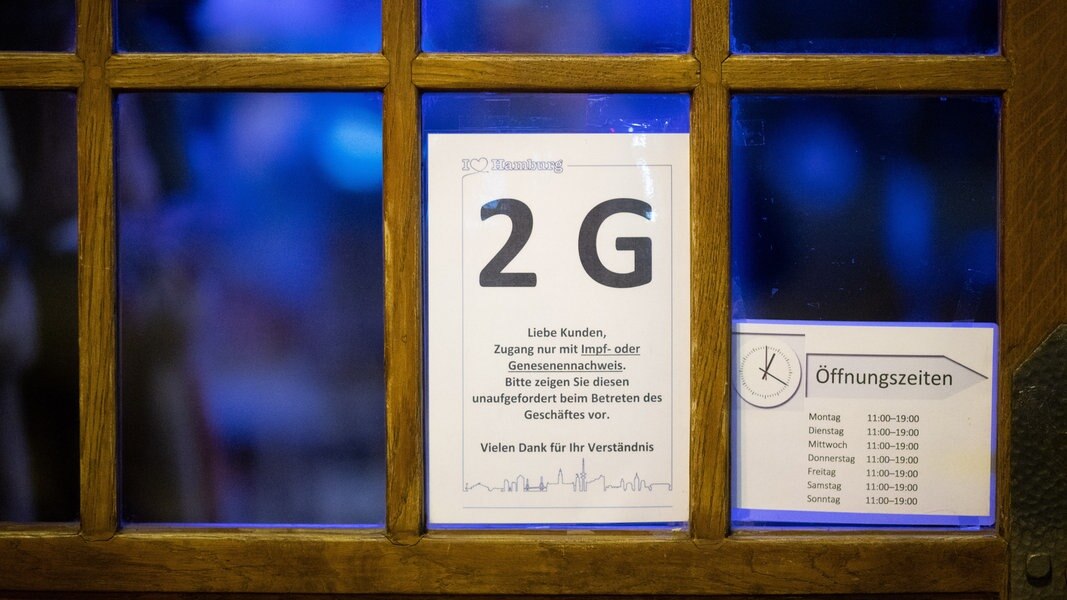 I Hamburg
2 G
Liebe Kunden,
Zugang nur mit Impf- oder
Genesenennachweis.
Bitte zeigen Sie diesen
unaufgefordert beim Betreten des
Geschäftes vor.
Vielen Dank für Ihr Verständnis
Öffnungszeiten
Montag 11:00–19:00
Dienstag 11:00–19:00
Mittwoch 11:00–19:00
Donnerstag 11:00–19:00
Freitag 11:00–19:00
Samstag 11:00–19:00
Sonntag 11:00–19:00